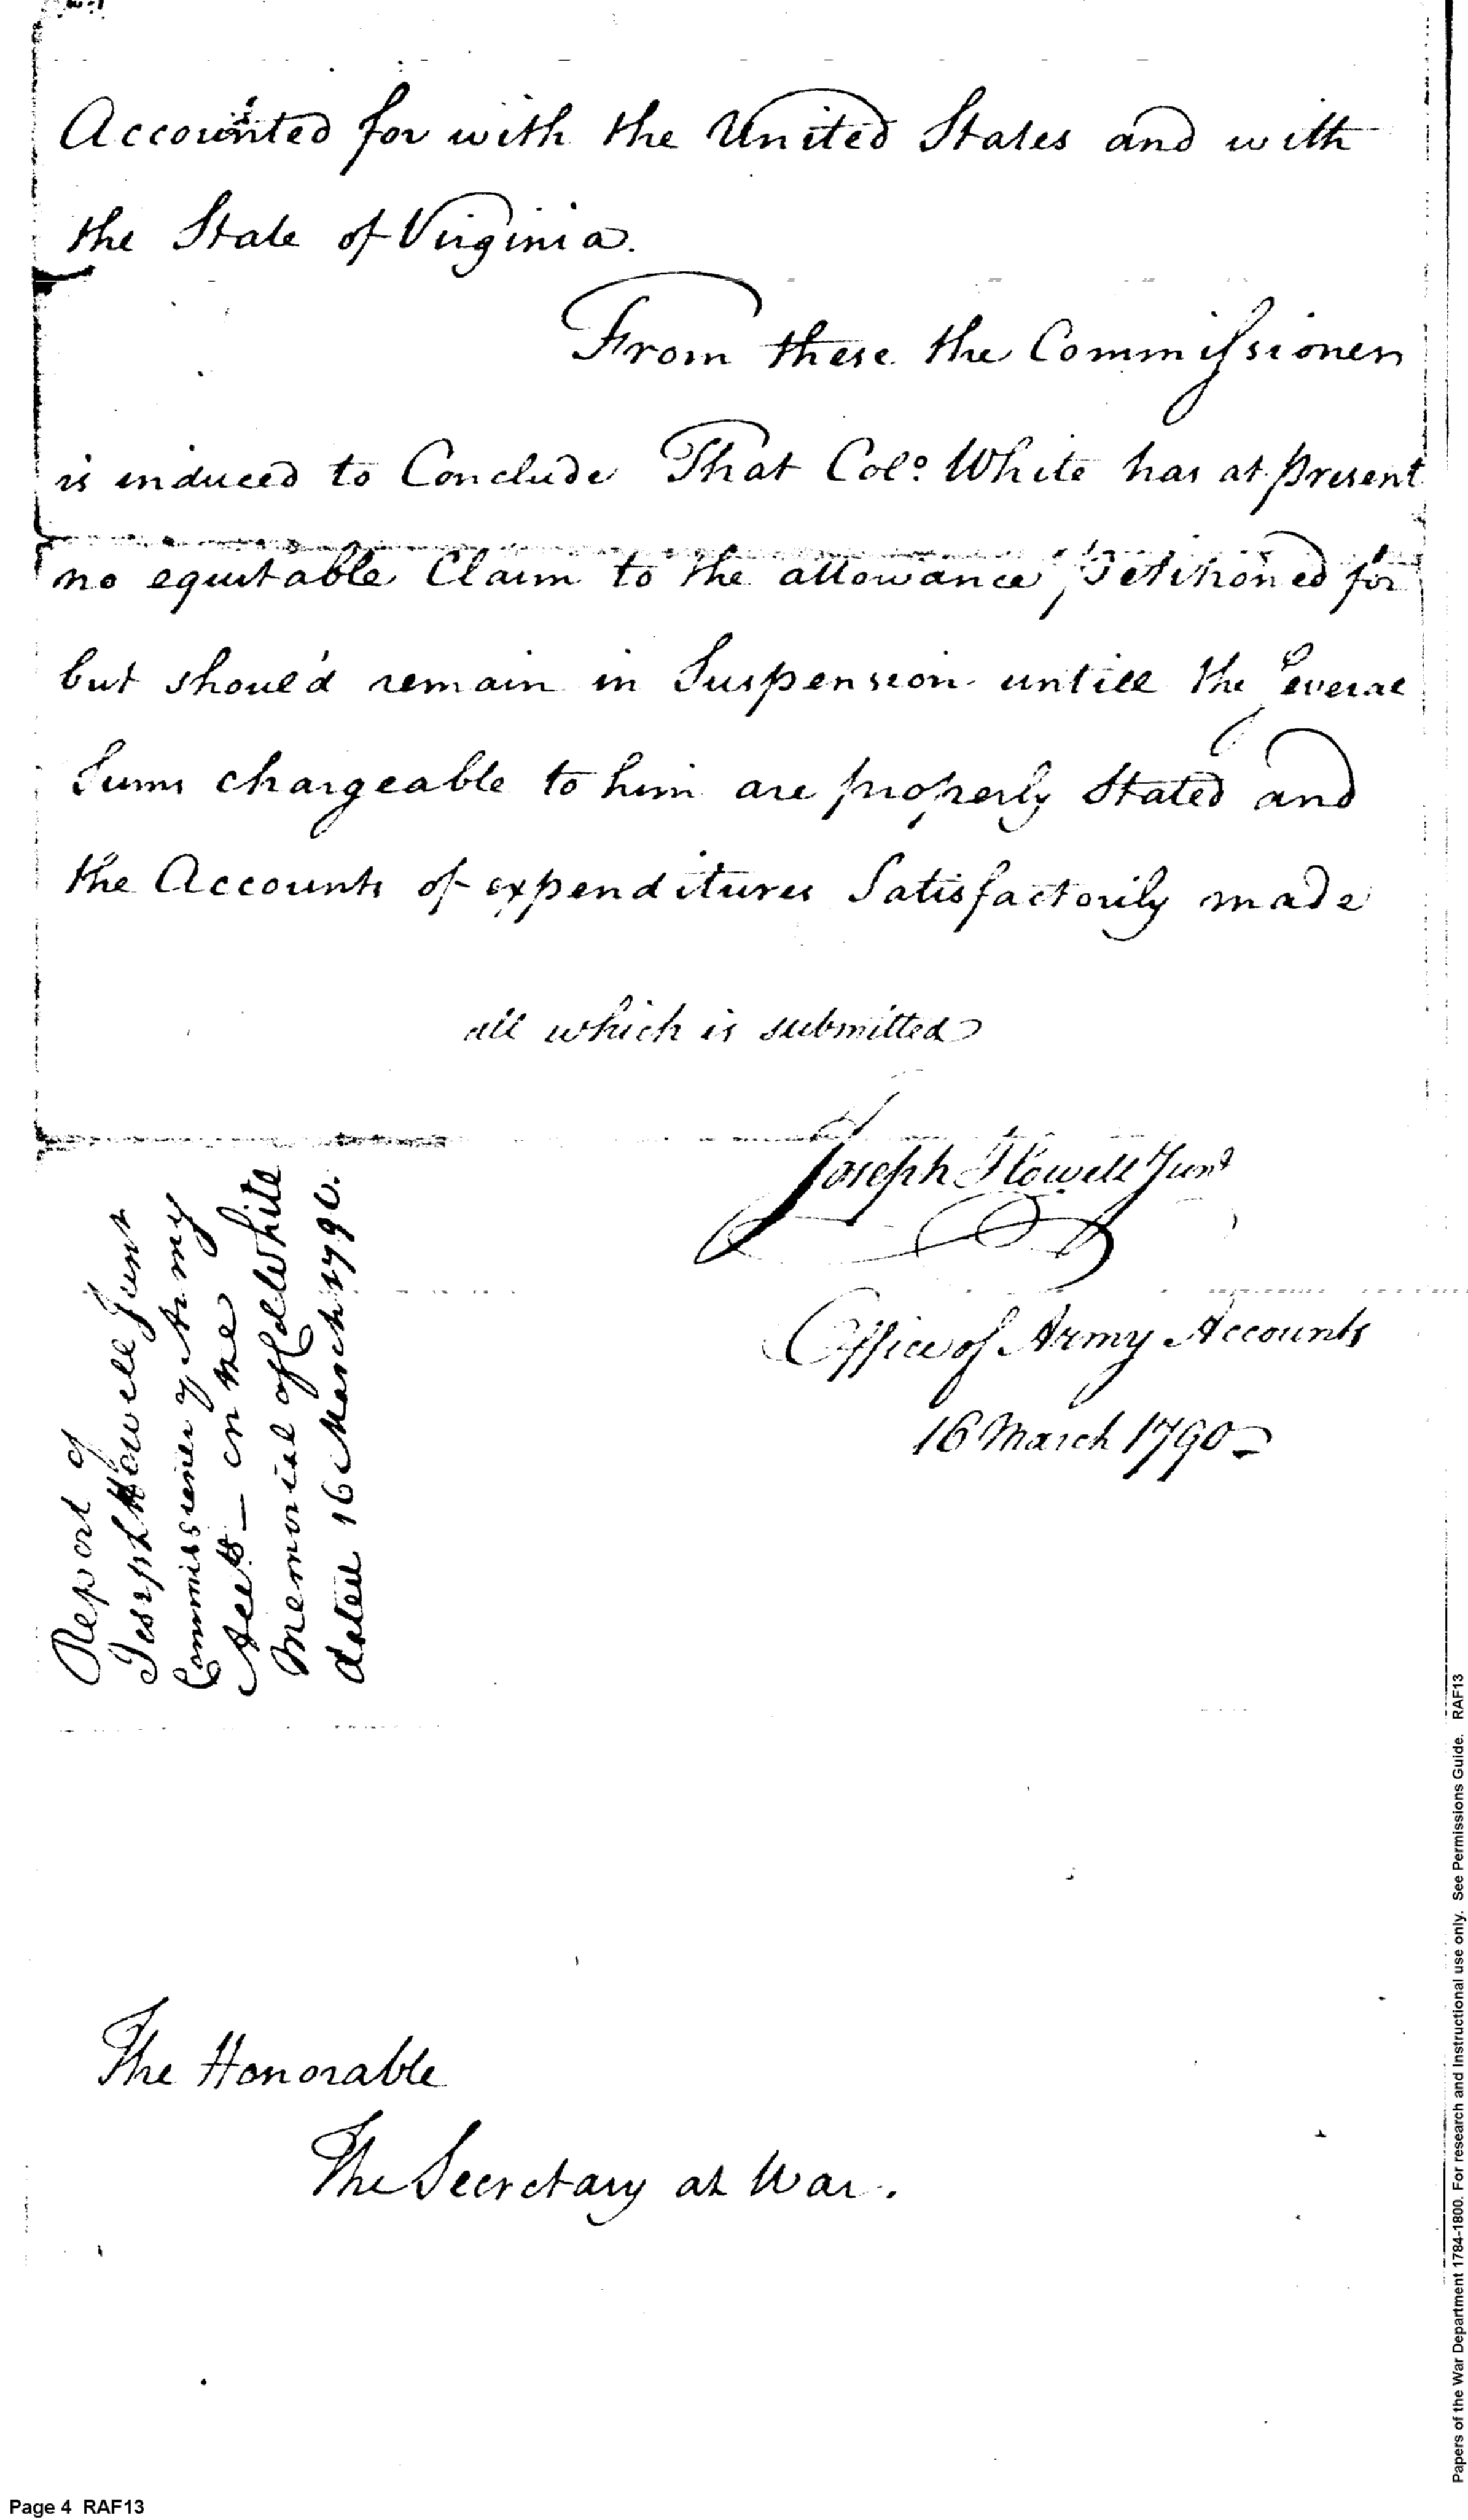 Accounted for with the United States and with
the State of Virginia.
From these the Commissioner
is induced to Conclude That Colo. White has at present
no equitable Claim to the allowance Petitioned for
but should remain in Suspension untill the Several
Sums chargeable to him are properly Stated and
the Accounts of expenditures Satisfactorily made
all which is submitted
Joseph Howell Junr
Office of Army Accounts
16 March 1790
Report of
Joseph Howell Junr
Commissioner of Army
Accts — on the
Memorial of Col White
dated 16 March 1790.
The Honorable
The Secretary at War.
Papers of the War Department 1784-1800. For research and instructional use only. See Permissions Guide. RAF13
Page 4 RAF13